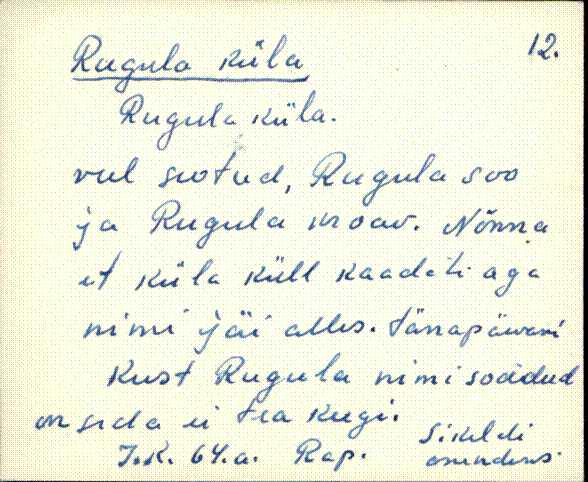 12.
Rugula küla
Rugula küla.
vel seotud, Rugula soo
ja Rugula kroav. Nõnna
et küla küll kaadeti aga
nimi jäi alles. tänapäevani
Kust Rugula nimi soadud
on seda ei tea kegi.
J.K. 64.a. Rap. Sikeldi
asundus.